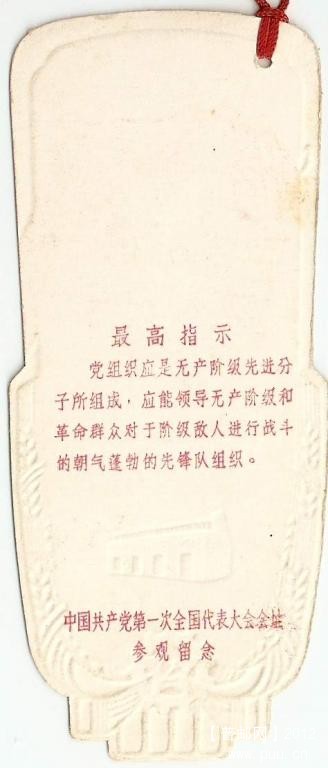 最高指示
党组织应是无产阶级先进分
子所组成，应能领导无产阶级和
革命群众对于阶级敌人进行战斗
的朝气蓬勃的先锋队组织。
中国共产党第一次全国代表大会会址
参观留念